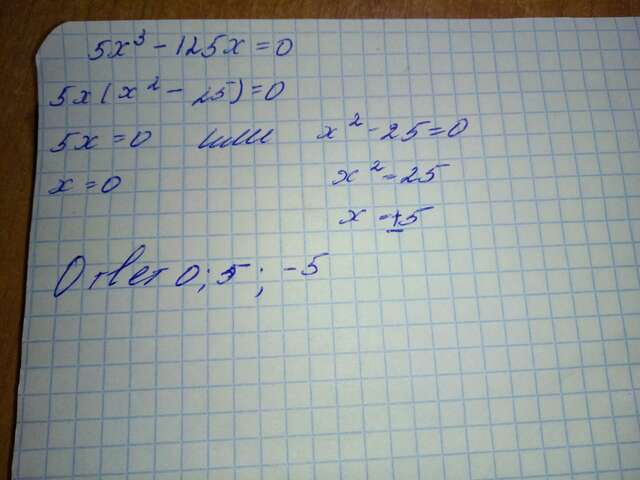 5x³ - 125x = 0
5x(x² - 25) = 0
5x = 0 или x² - 25 = 0
x = 0 x² = 25
x = ±5
Ответ 0; 5; -5